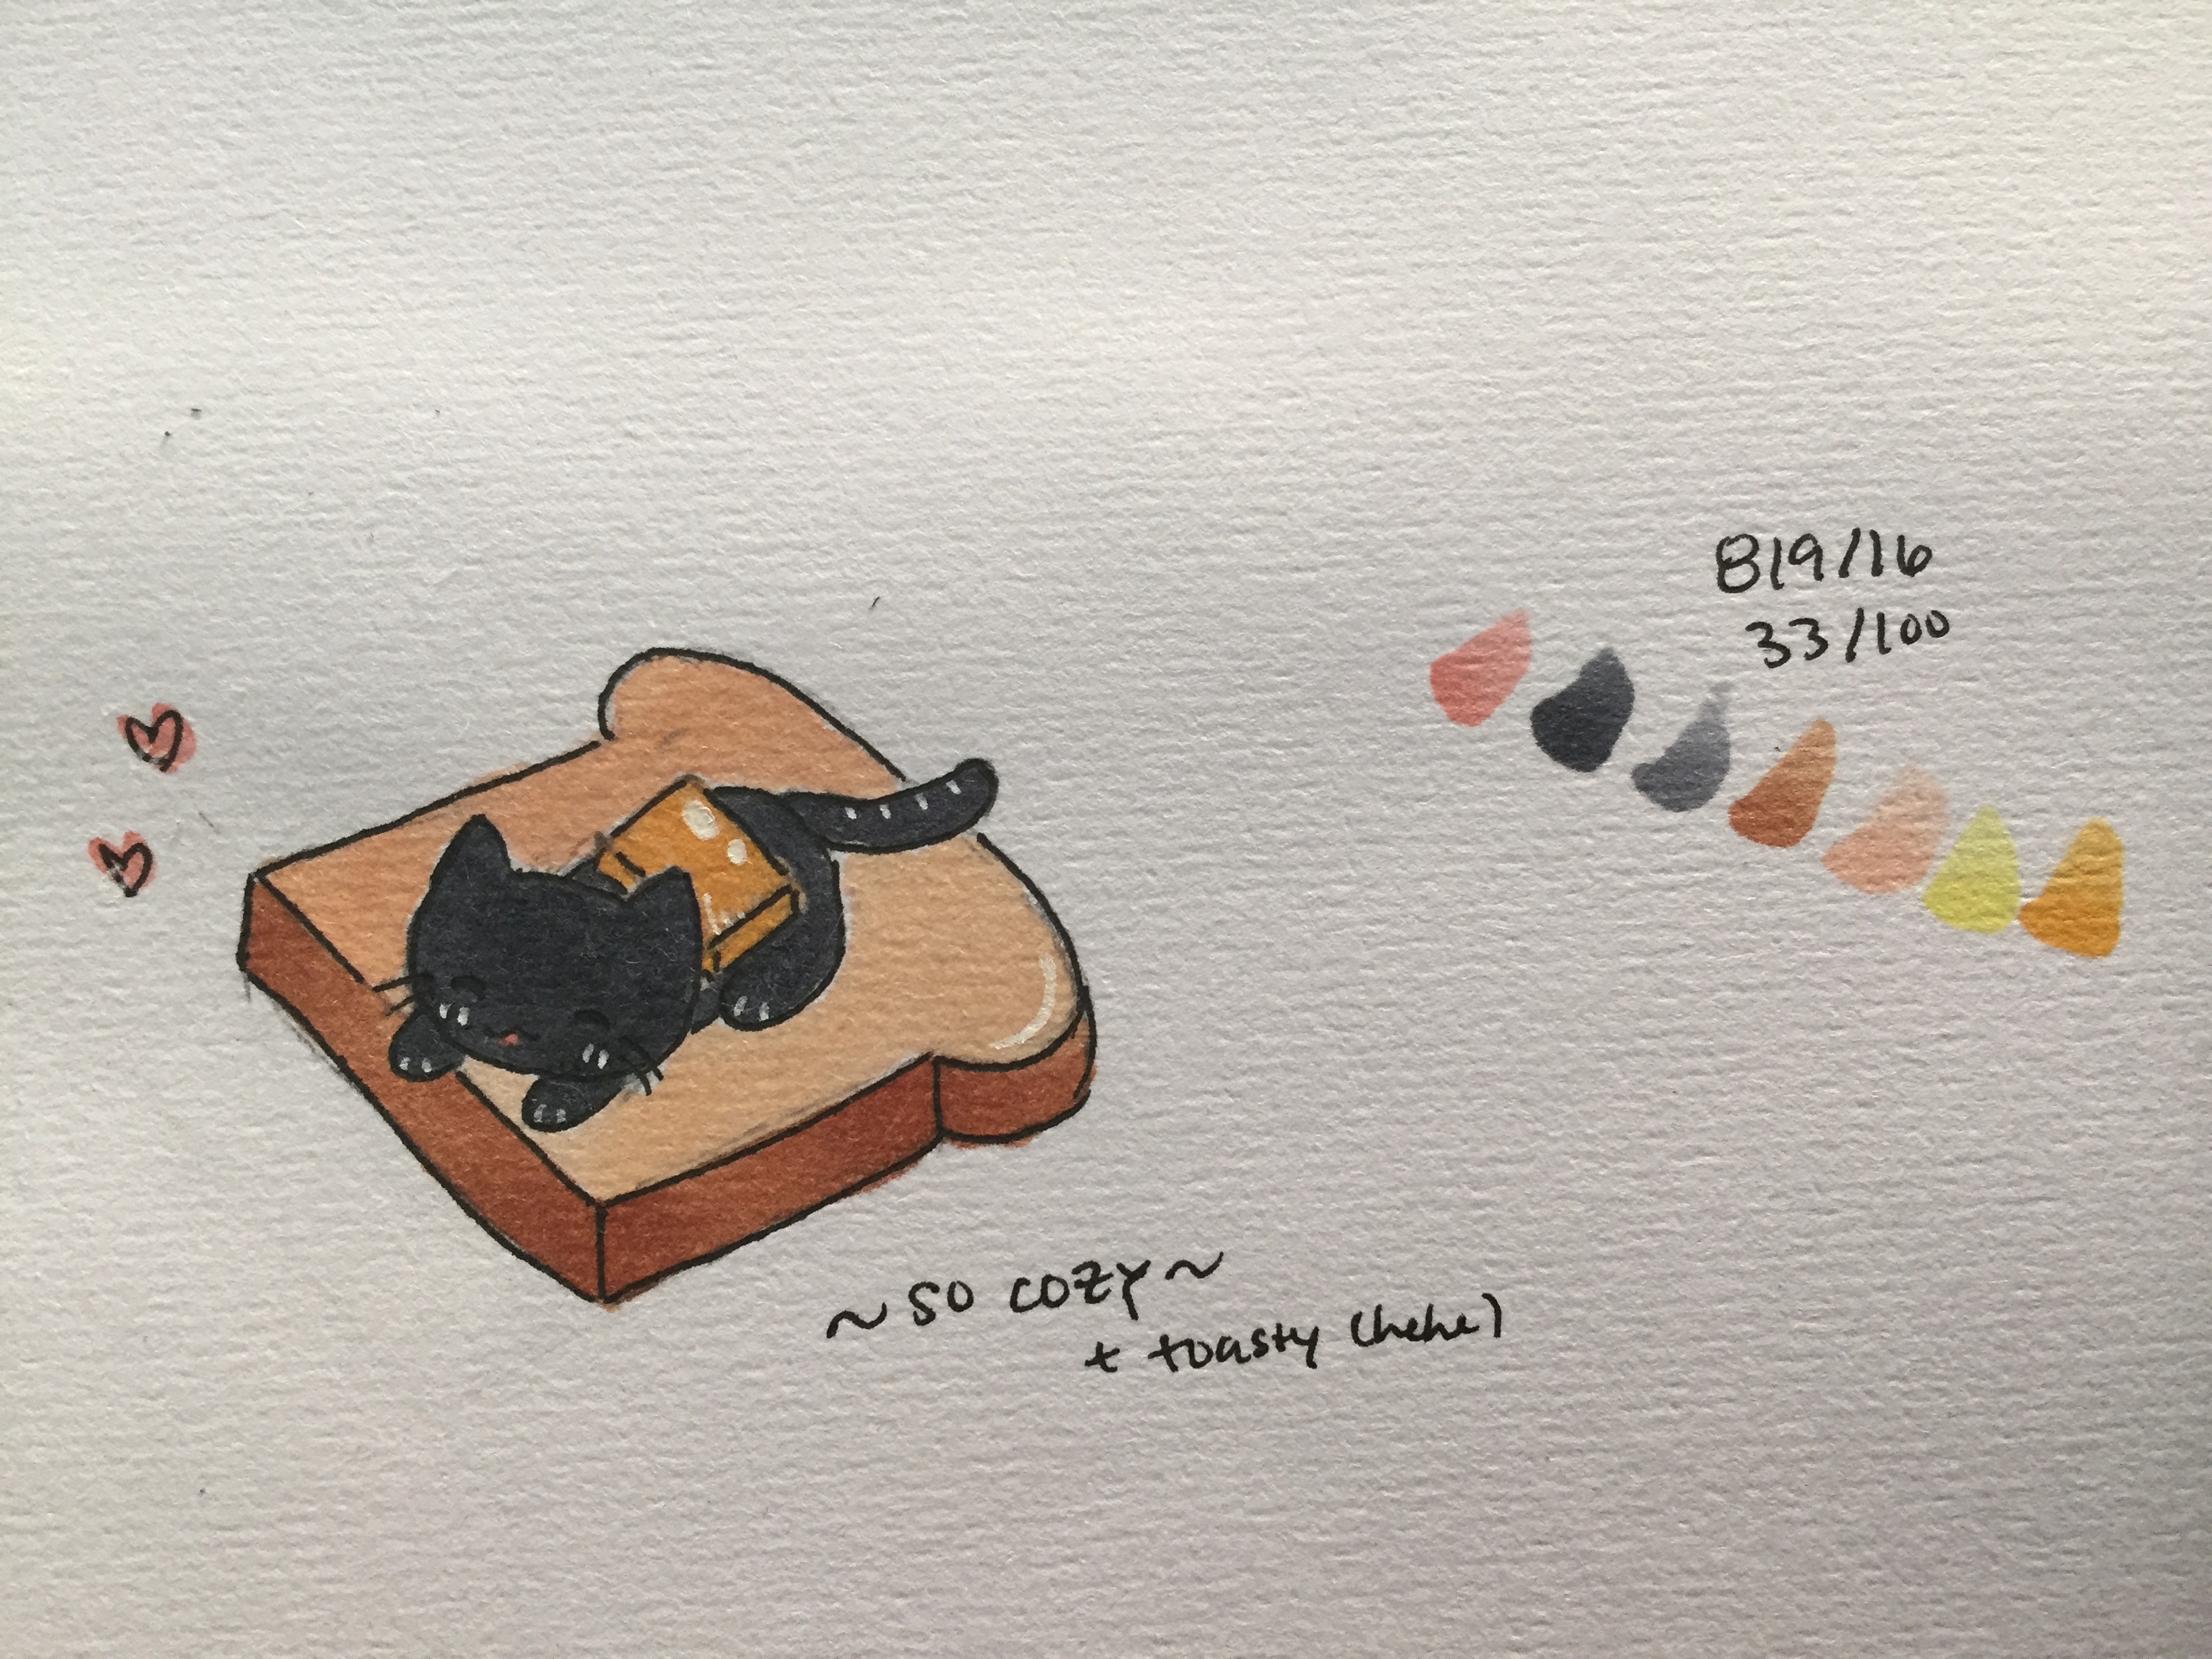 819/16
33/100
~so cozy~
+ toasty (hehe)